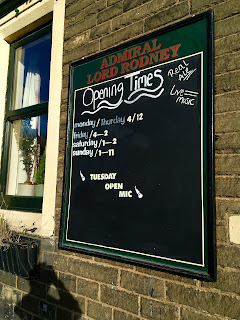 ADMIRAL
LORD RODNEY
Opening Times
REAL
ALE
Live
music
monday / Thursday 4/12
friday / 4-2
saturday / 1-2
sunday / 1-11
TUESDAY
OPEN
MIC